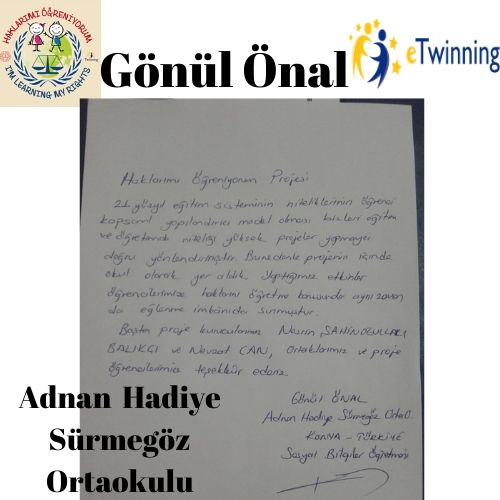 HAKLARIMI ÖĞRENİYORUM
I'M LEARNING MY RIGHTS
Gönül Önal
eTwinning
Haklarımı Öğreniyorum Projesi
21. yüzyıl eğitim sisteminin niteliklerinin öğrenci
kapsamlı yapılandırıcı model olması bizleri eğitim
ve öğretimde niteliği yüksek projeler yapmaya
doğru yönlendirmiştir. Bu nedenle projenin içinde
okul olarak yer aldık. Yaptığımız etkinler
öğrencilerimize haklarını öğretme konusunda aynı zaman
da eğlenme imkânıda sunmuştur.
Başta proje kurucularımız Nesrin ŞAHİNOĞULLARI
BALIKCI ve Nevzat CAN, ortaklarımız ve proje
öğrencilerimize teşekkür ederiz
GÖNÜL ÖNAL
Adnan Hadiye Sürmegöz Ortao.
KONYA - TÜRKİYE
Sosyal Bilgiler Öğretmeni
Adnan Hadiye
Sürmegöz
Ortaokulu